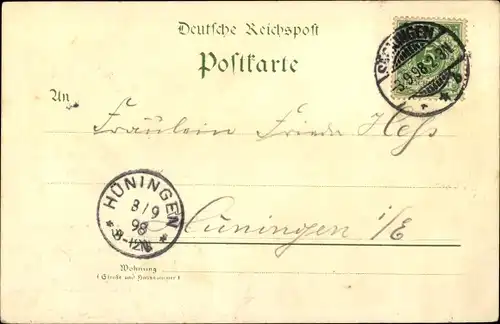 Deutsche Reichspost
Postkarte
SÄCKINGEN
.9.98.2-3N.
An
Fräulein Frieda Hess
HÜNINGEN
8/9
98
8-12N
Hüningen i/E
Wohnung
(Straße und Hausnummer)